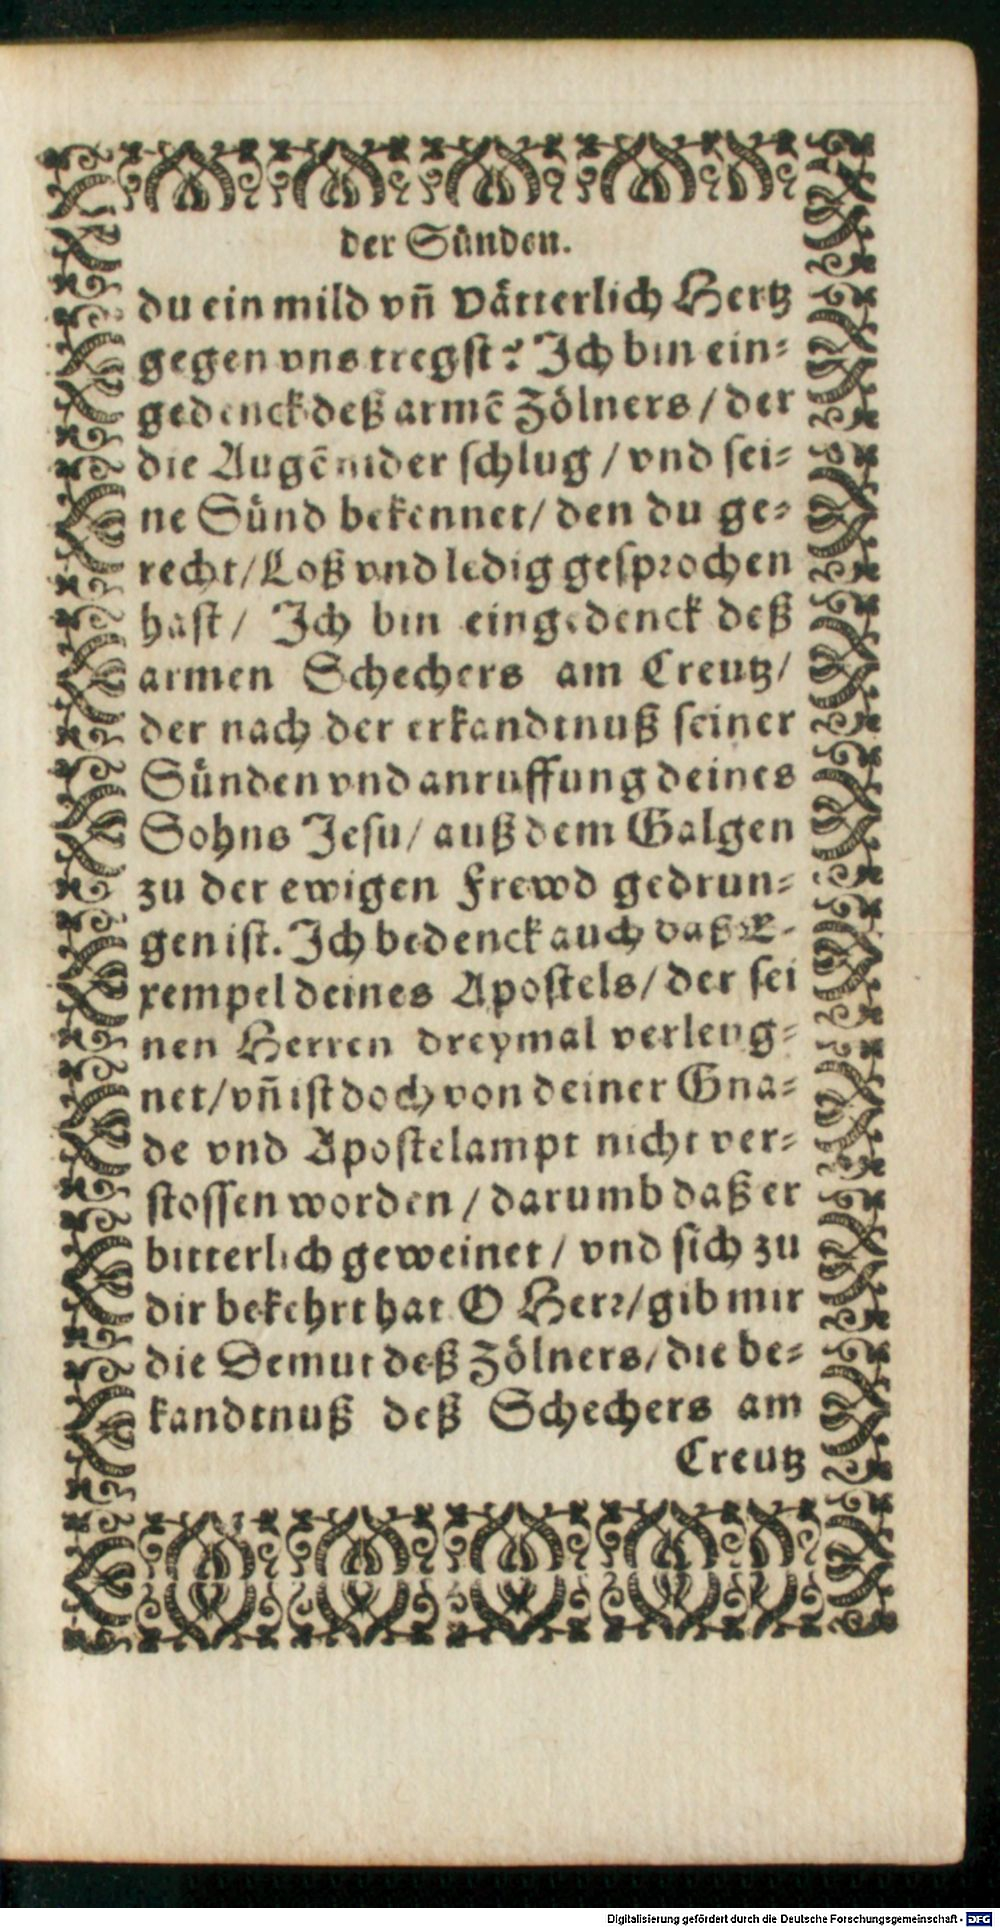 der Sünden.
du ein mild vñ Vätterlich Hertz
gegen vns tregst? Ich bin ein-
gedenck deß armẽ Zölners / der
die Augẽ nider schlug / vnd sei-
ne Sünd bekennet / den du ge-
recht / Loß vnd ledig gesprochen
hast / Ich bin eingedenck deß
armen Schechers am Creutz /
der nach der erkandtnuß seiner
Sünden vnd anruffung deines
Sohns Jesu / auß dem Galgen
zu der ewigen Frewd gedrun-
gen ist. Ich bedenck auch daß E-
xempel deines Apostels / der sei
nen Herren dreymal verleug-
net / vñ ist doch von deiner Gna-
de vnd Apostelampt nicht ver-
stossen worden / darumb daß er
bitterlich geweinet / vnd sich zu
dir bekehrt hat O Herr / gib mir
die Demut deß Zölners / die be-
kandtnuß deß Schechers am
Creutz
Digitalisierung gefördert durch die Deutsche Forschungsgemeinschaft - DFG